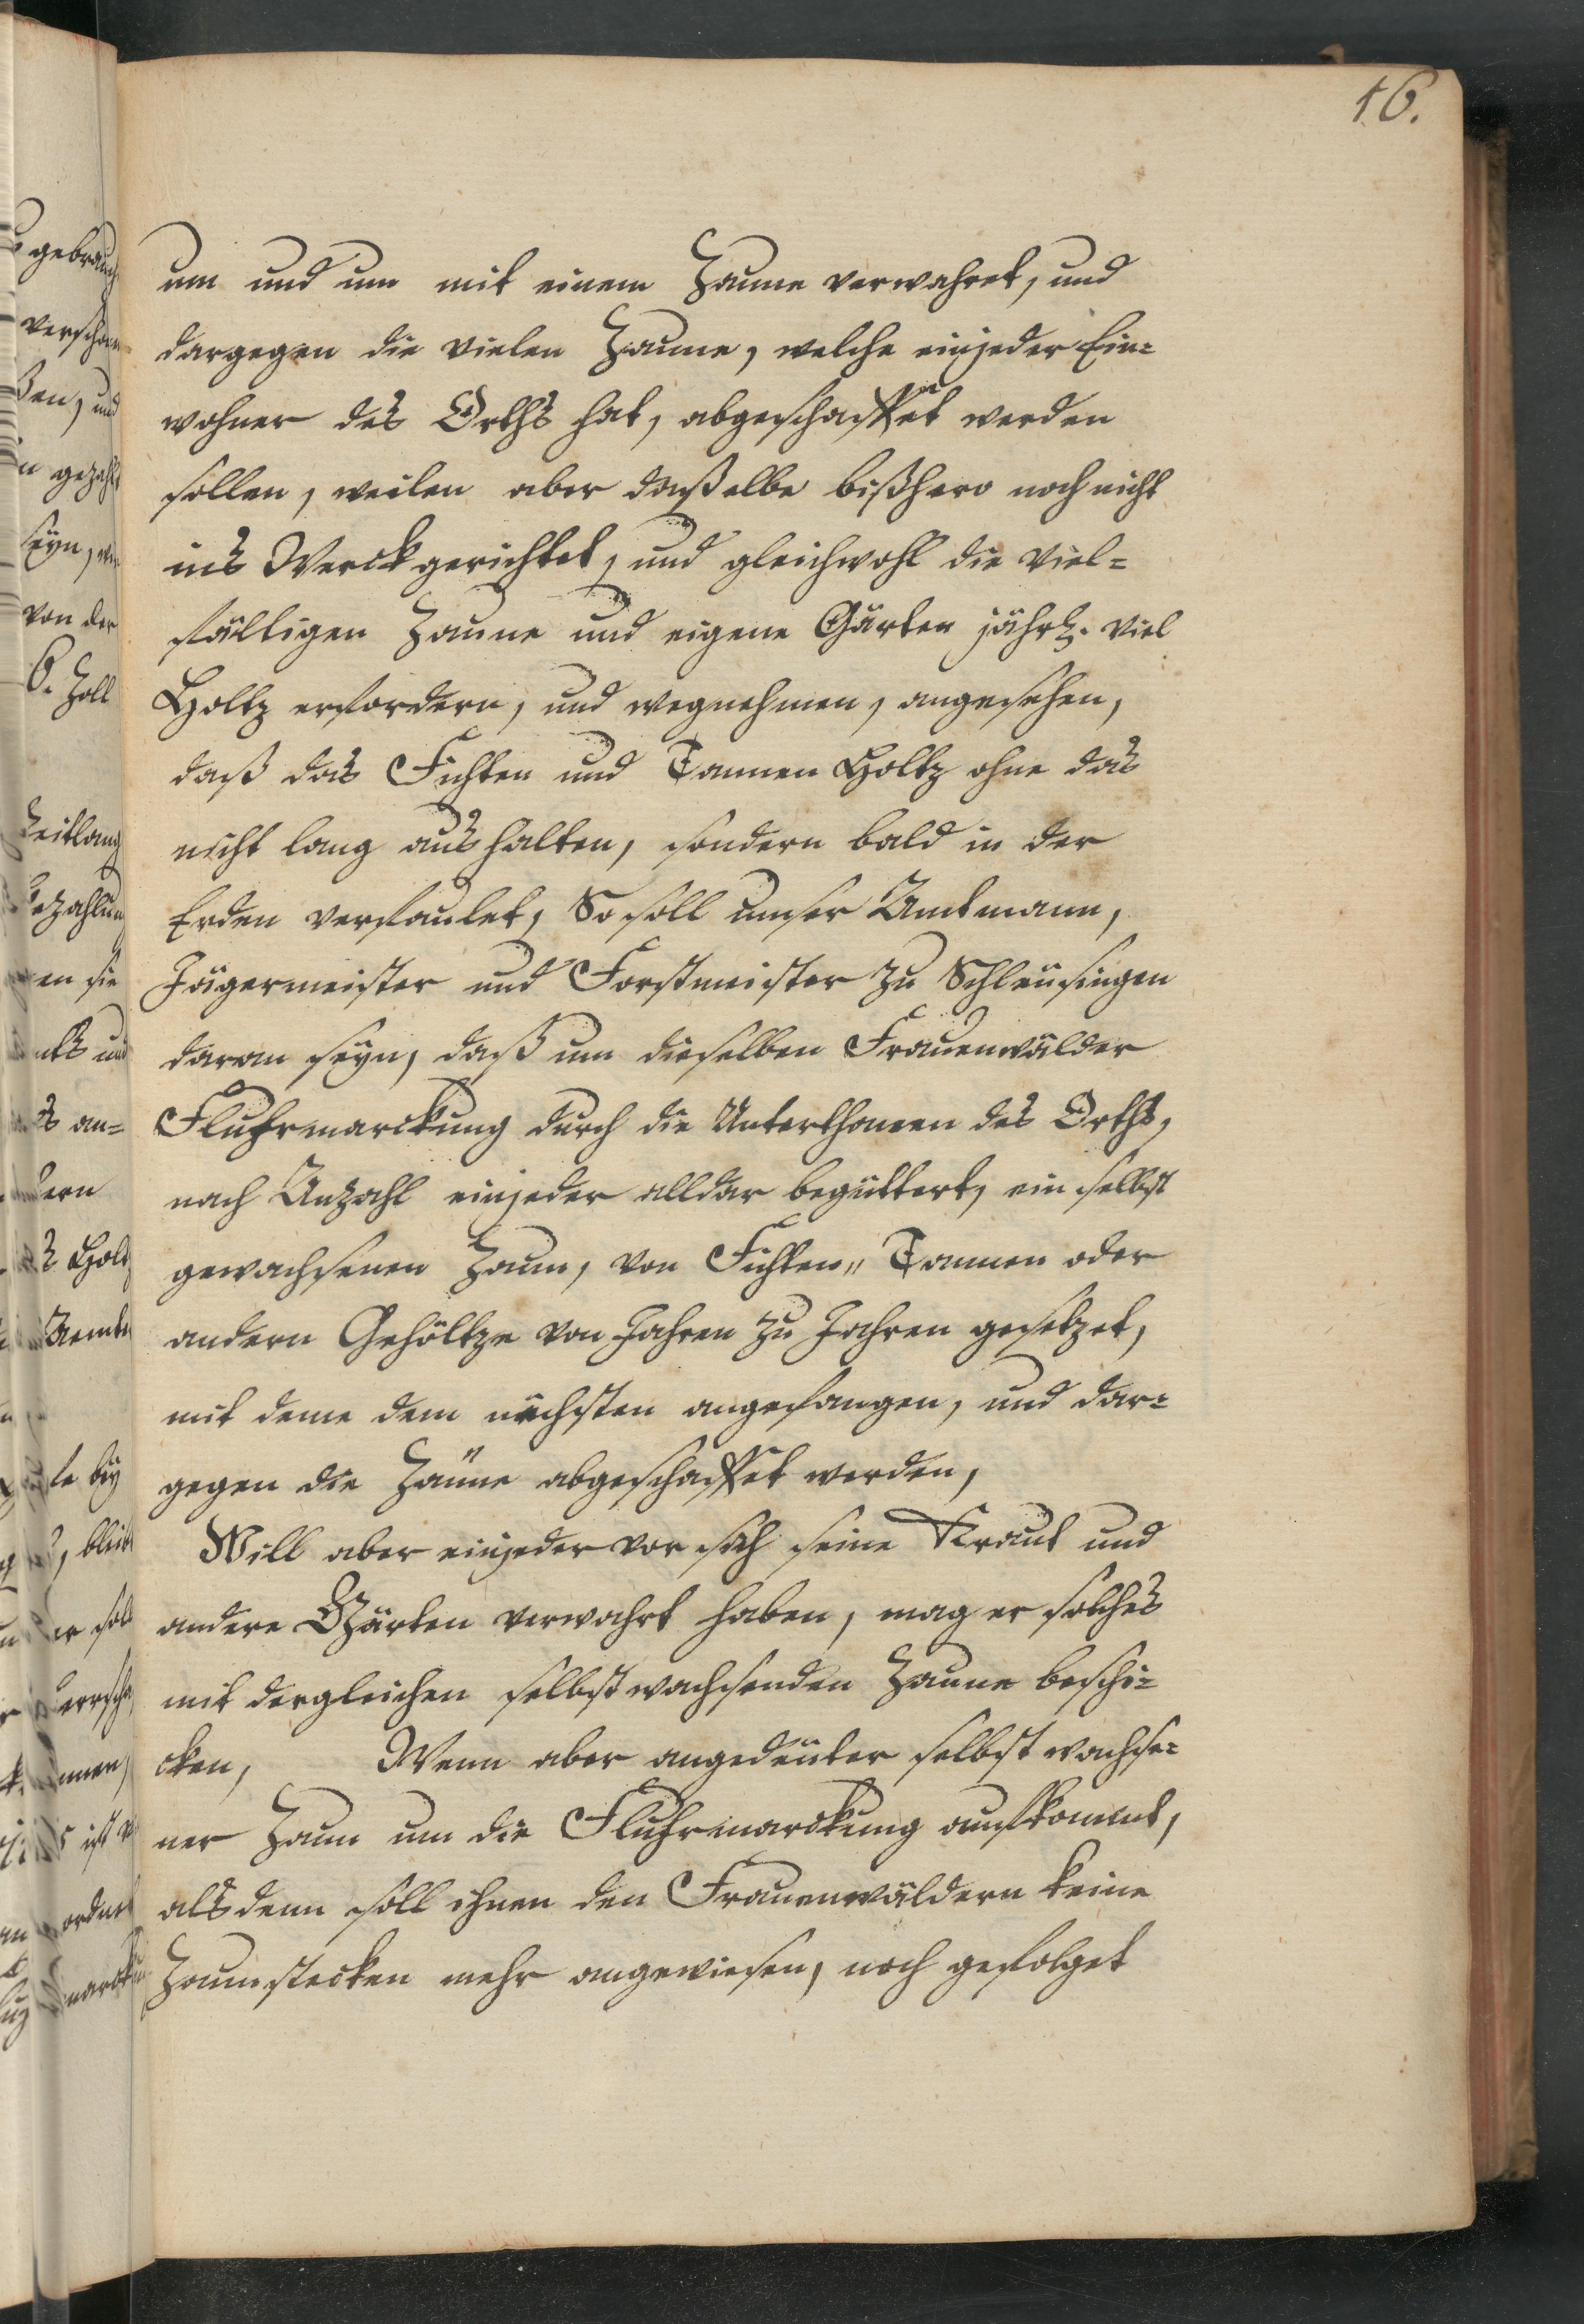 16.
um und um mit einem Zaune verwahret, und
dargegen die vielen Zaune, welche einjeder Ein=
wohner des Orths hat, abgeschaffet werden
sollen, weilen aber daßelbe bißhero noch nicht
ins Werck gerichtet, und gleichwohl die viel=
fältigen Zaune und eigene Gärten jährl. viel
Holtz erfordern, und wegnehmen, angesehen,
daß das Fichten und Tannen Holtz ohne das
nicht lang aushalten, sondern bald in der
Erden verfaulet, So soll unser Amtmann,
Jägermeister und Forstmeister zu Schleusingen
daran seyn, daß um dieselben Frauenwälder
Fluhrmarckung durch die Unterthanen des Orths,
nach Anzahl einjeder alldar begüttert, ein selbst
gewachsenen Zaun, von Fichten,, Tannen oder
andern Gehöltze von Jahren zu Jahren gesetzet,
mit deme dem nechsten angefangen, und dar=
gegen die Zäune abgeschaffet werden,
Will aber einjeder vor sich seine Kraut und
andere Gärten verwahrt haben, mag er solches
mit dergleichen selbst wachsenden Zaune beschi=
cken, Wenn aber angedeuter selbst wachse=
ner Zaun um die Fluhrmarckung aufkommt,
als denn soll ihnen den Frauenwäldern keine
Zaunstecken mehr angewiesen, noch gefolget